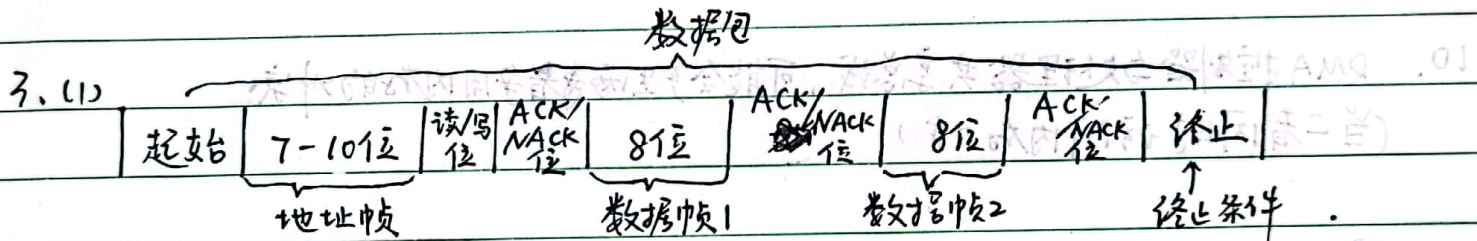 数据包
3. (1)
起始 7-10位 读/写位 ACK/NACK位 8位 ACK/NACK位 8位 ACK/NACK位 终止
地址帧 数据帧1 数据帧2 终止条件.